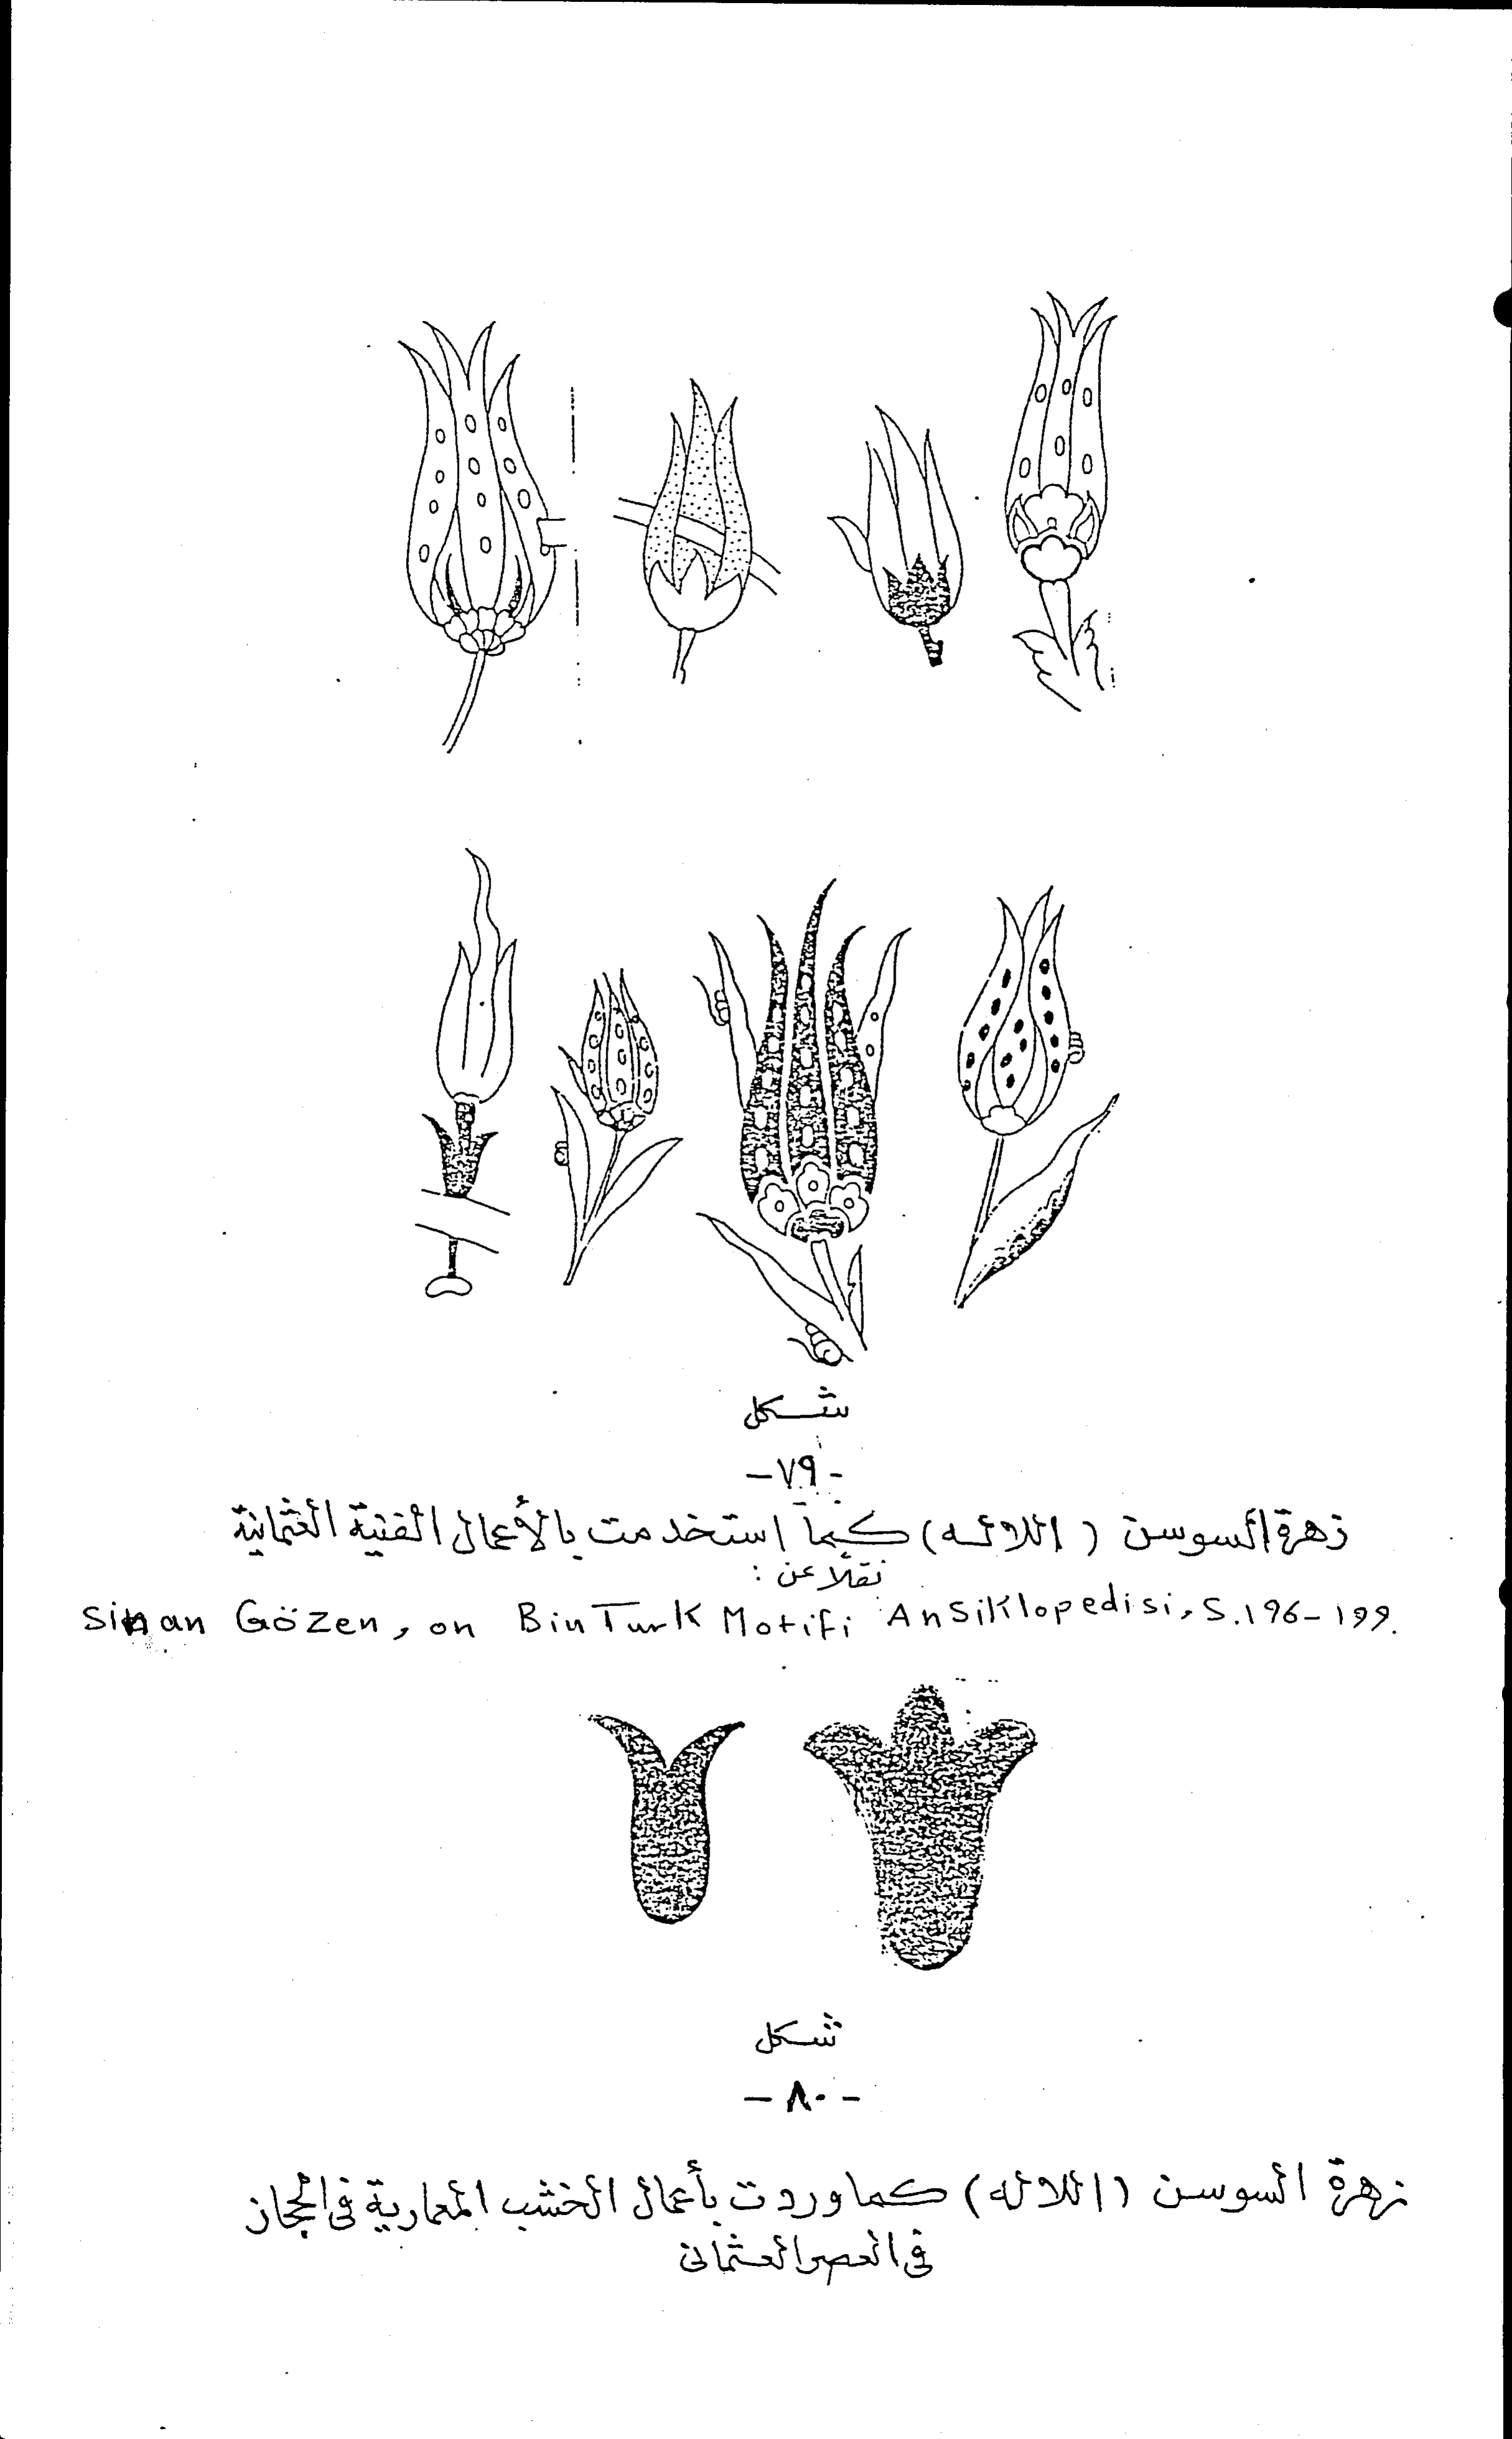 شكل
-٧٩-
زهرة السوسن (اللاله) كما استخدمت بالأعمال الفنية العثمانية
نقلاً عن :
Sinan Gözen, on Bin Turk Motifi Ansiklopedisi, S.196-199.
شكل
-٨٠-
زهرة السوسن (اللاله) كما وردت بأعمال الخشب المعمارية فى الحجاز
فى العصر العثمانى